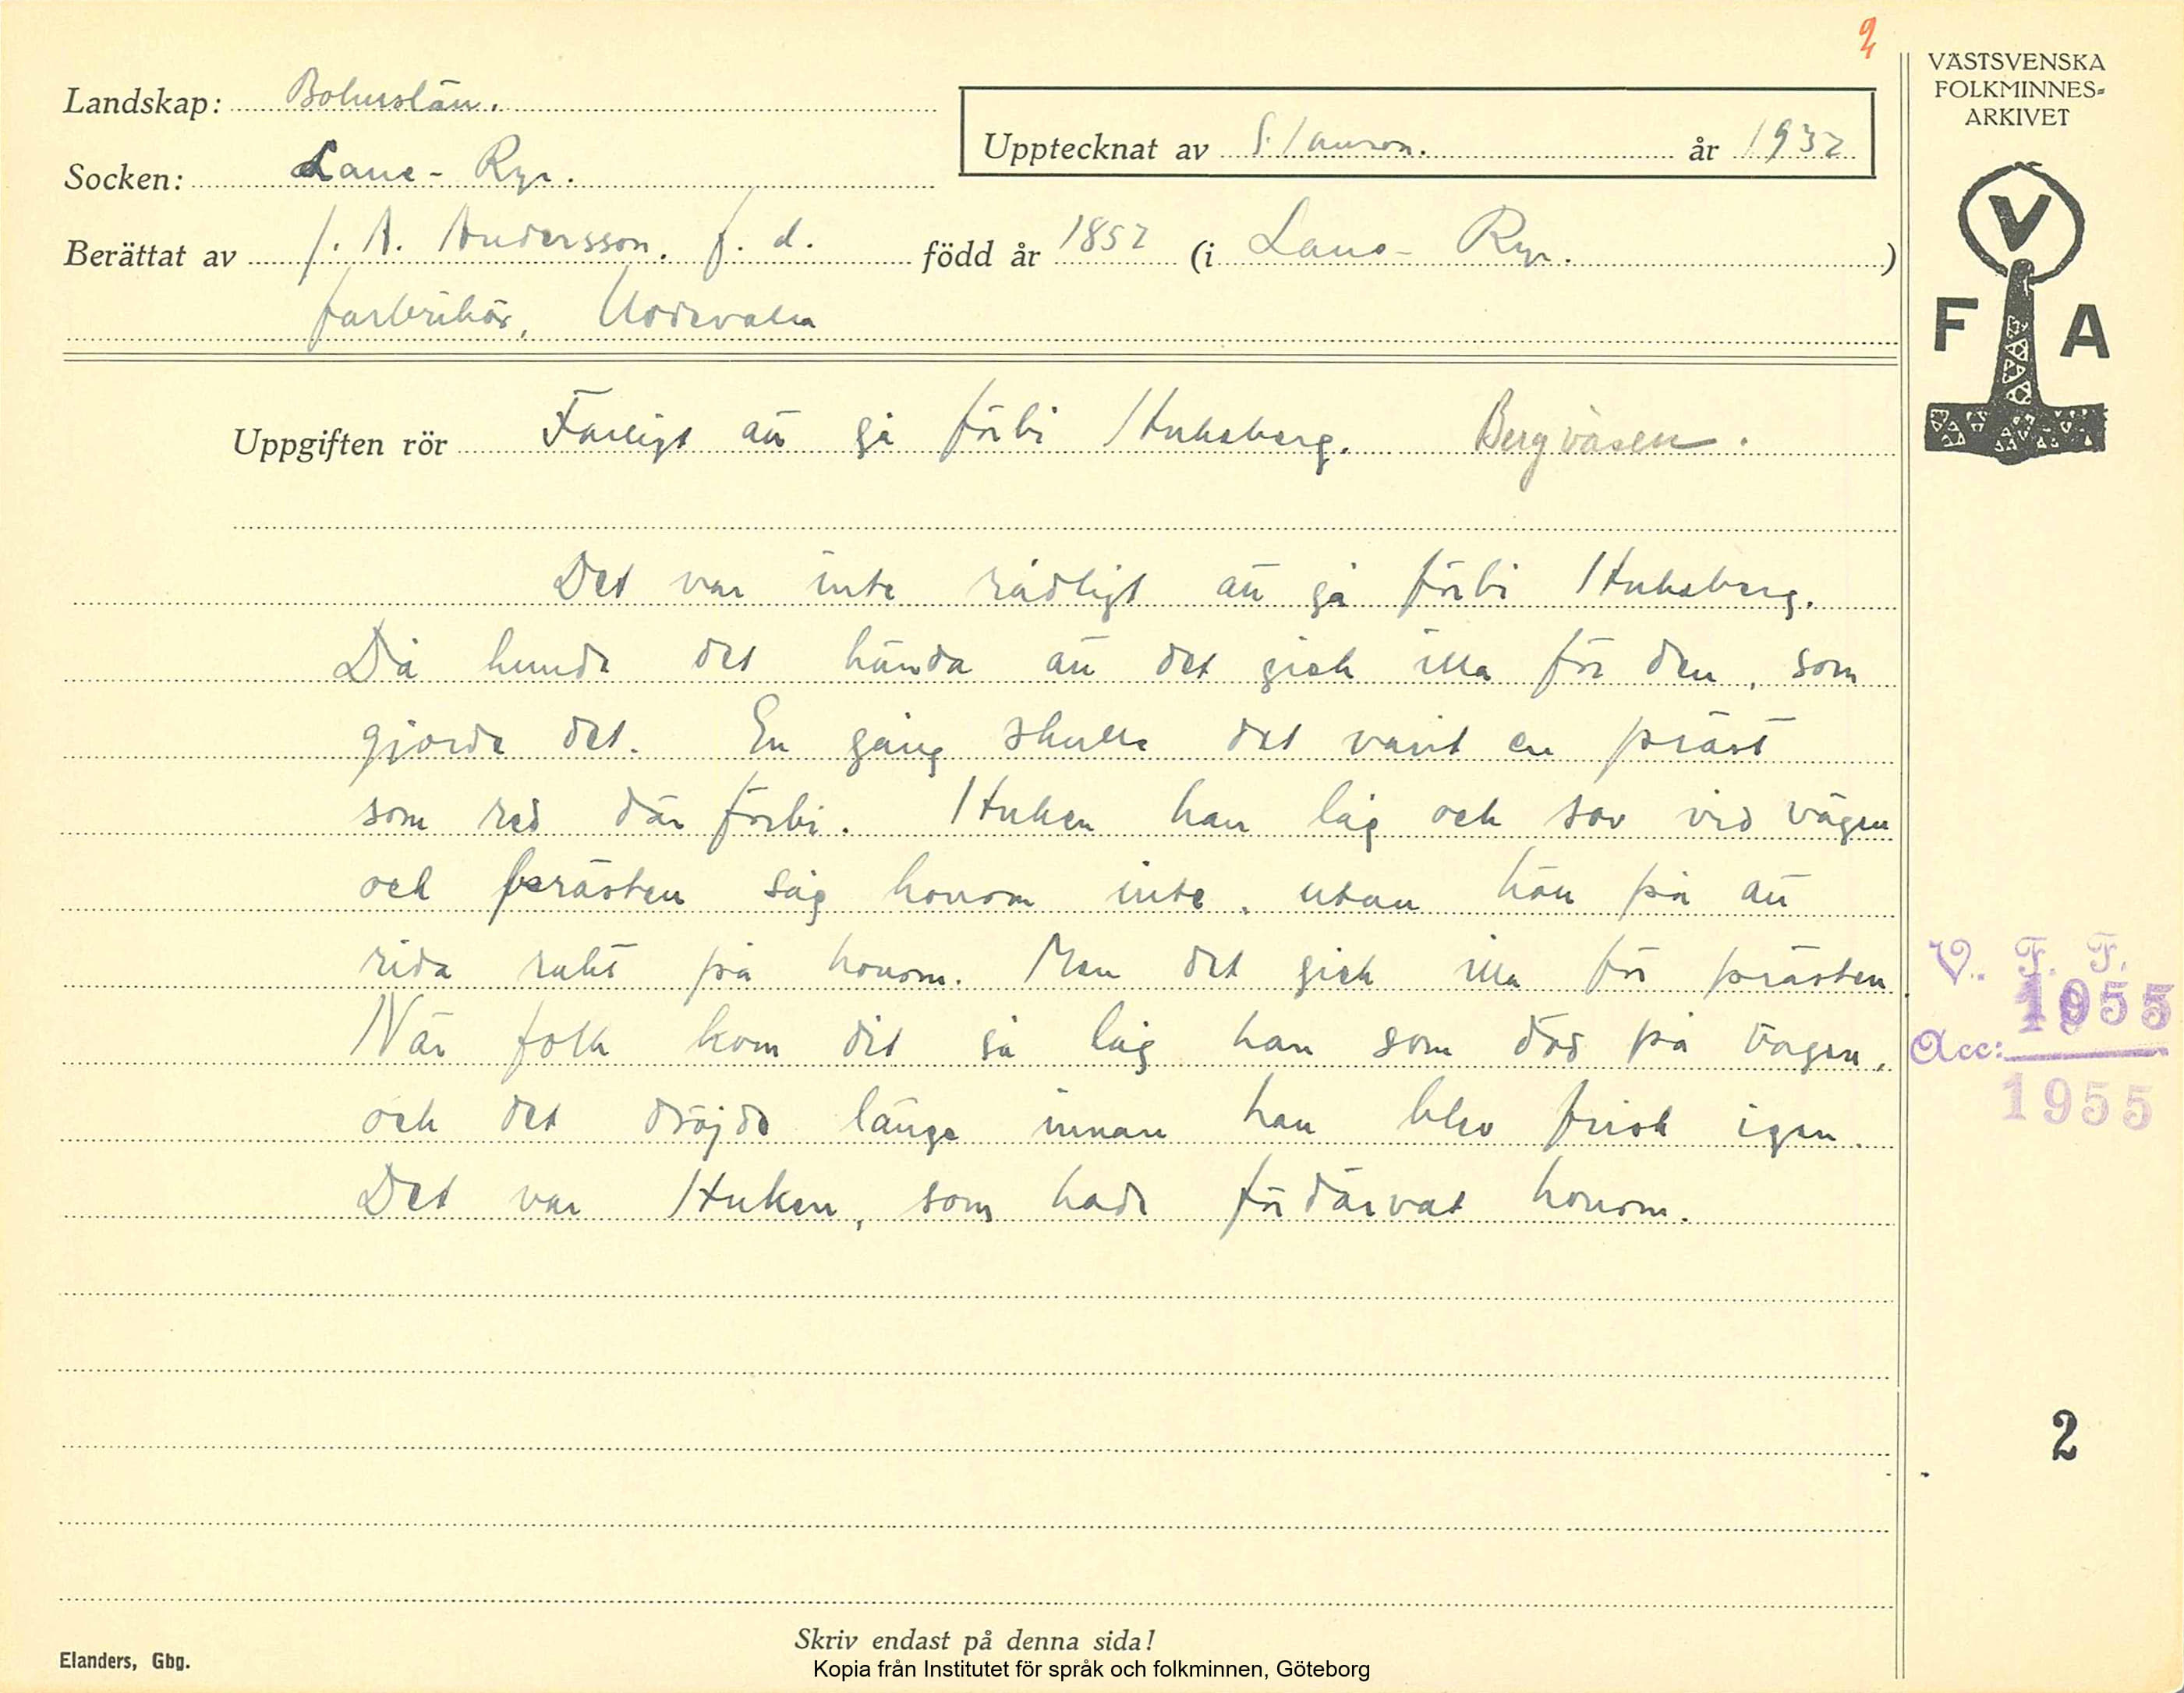 2
VÄSTSVENSKA
FOLKMINNES=
ARKIVET
V
F A
Landskap: Bohuslän.
Upptecknat av S. Janson. år 1932
Socken: Lane-Ryr.
Berättat av J. A. Andersson. f. d. född år 1852 (i Lane-Ryr.)
farbrikör, Uddevalla
Uppgiften rör Farligt att gå förbi Stuksberg. Bergväsen.
Det var inte rådligt att gå förbi Stuksberg.
Då kunde det hända att det gick illa för den, som
gjorde det. En gång skulle det varit en präst
som red där förbi. Stuken han låg och sov vid vägen
och prästen såg honom inte, utan höll på att
rida rakt på honom. Men det gick illa för prästen.
När folk kom dit så låg han som död på vägen,
och det dröjde länge innan han blev frisk igen.
Det var Stuken, som hade fördärvat honom.
V. F. F.
1955
Acc:
1955
2
Skriv endast på denna sida!
Elanders, Gbg.
Kopia från Institutet för språk och folkminnen, Göteborg